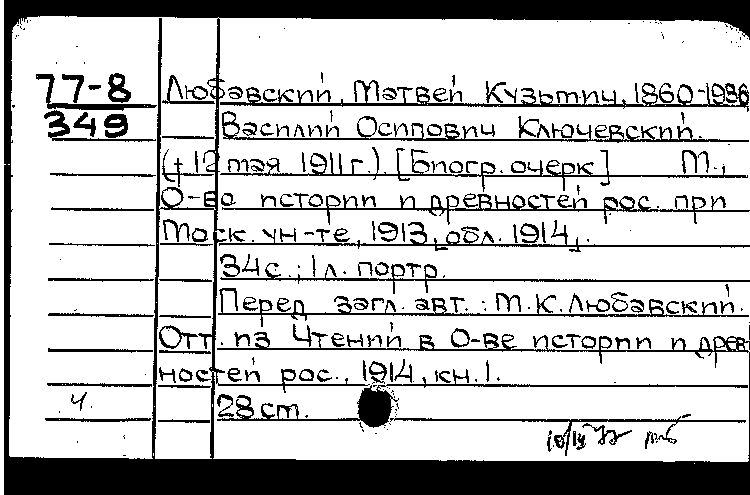 77-8
349
Любавский, Матвей Кузьмич, 1860-1936
Василий Осипович Ключевский.
(† 12 мая 1911 г.). [Биогр. очерк] М.,
О-во истории и древностей рос. при
Моск. ун-те, 1913, [обл. 1914].
34 с.; 1 л. портр.
Перед загл. авт.: М.К. Любавский.
Отт. из Чтений в О-ве истории и древ-
ностей рос., 1914, кн. 1.
ч.
28 см.